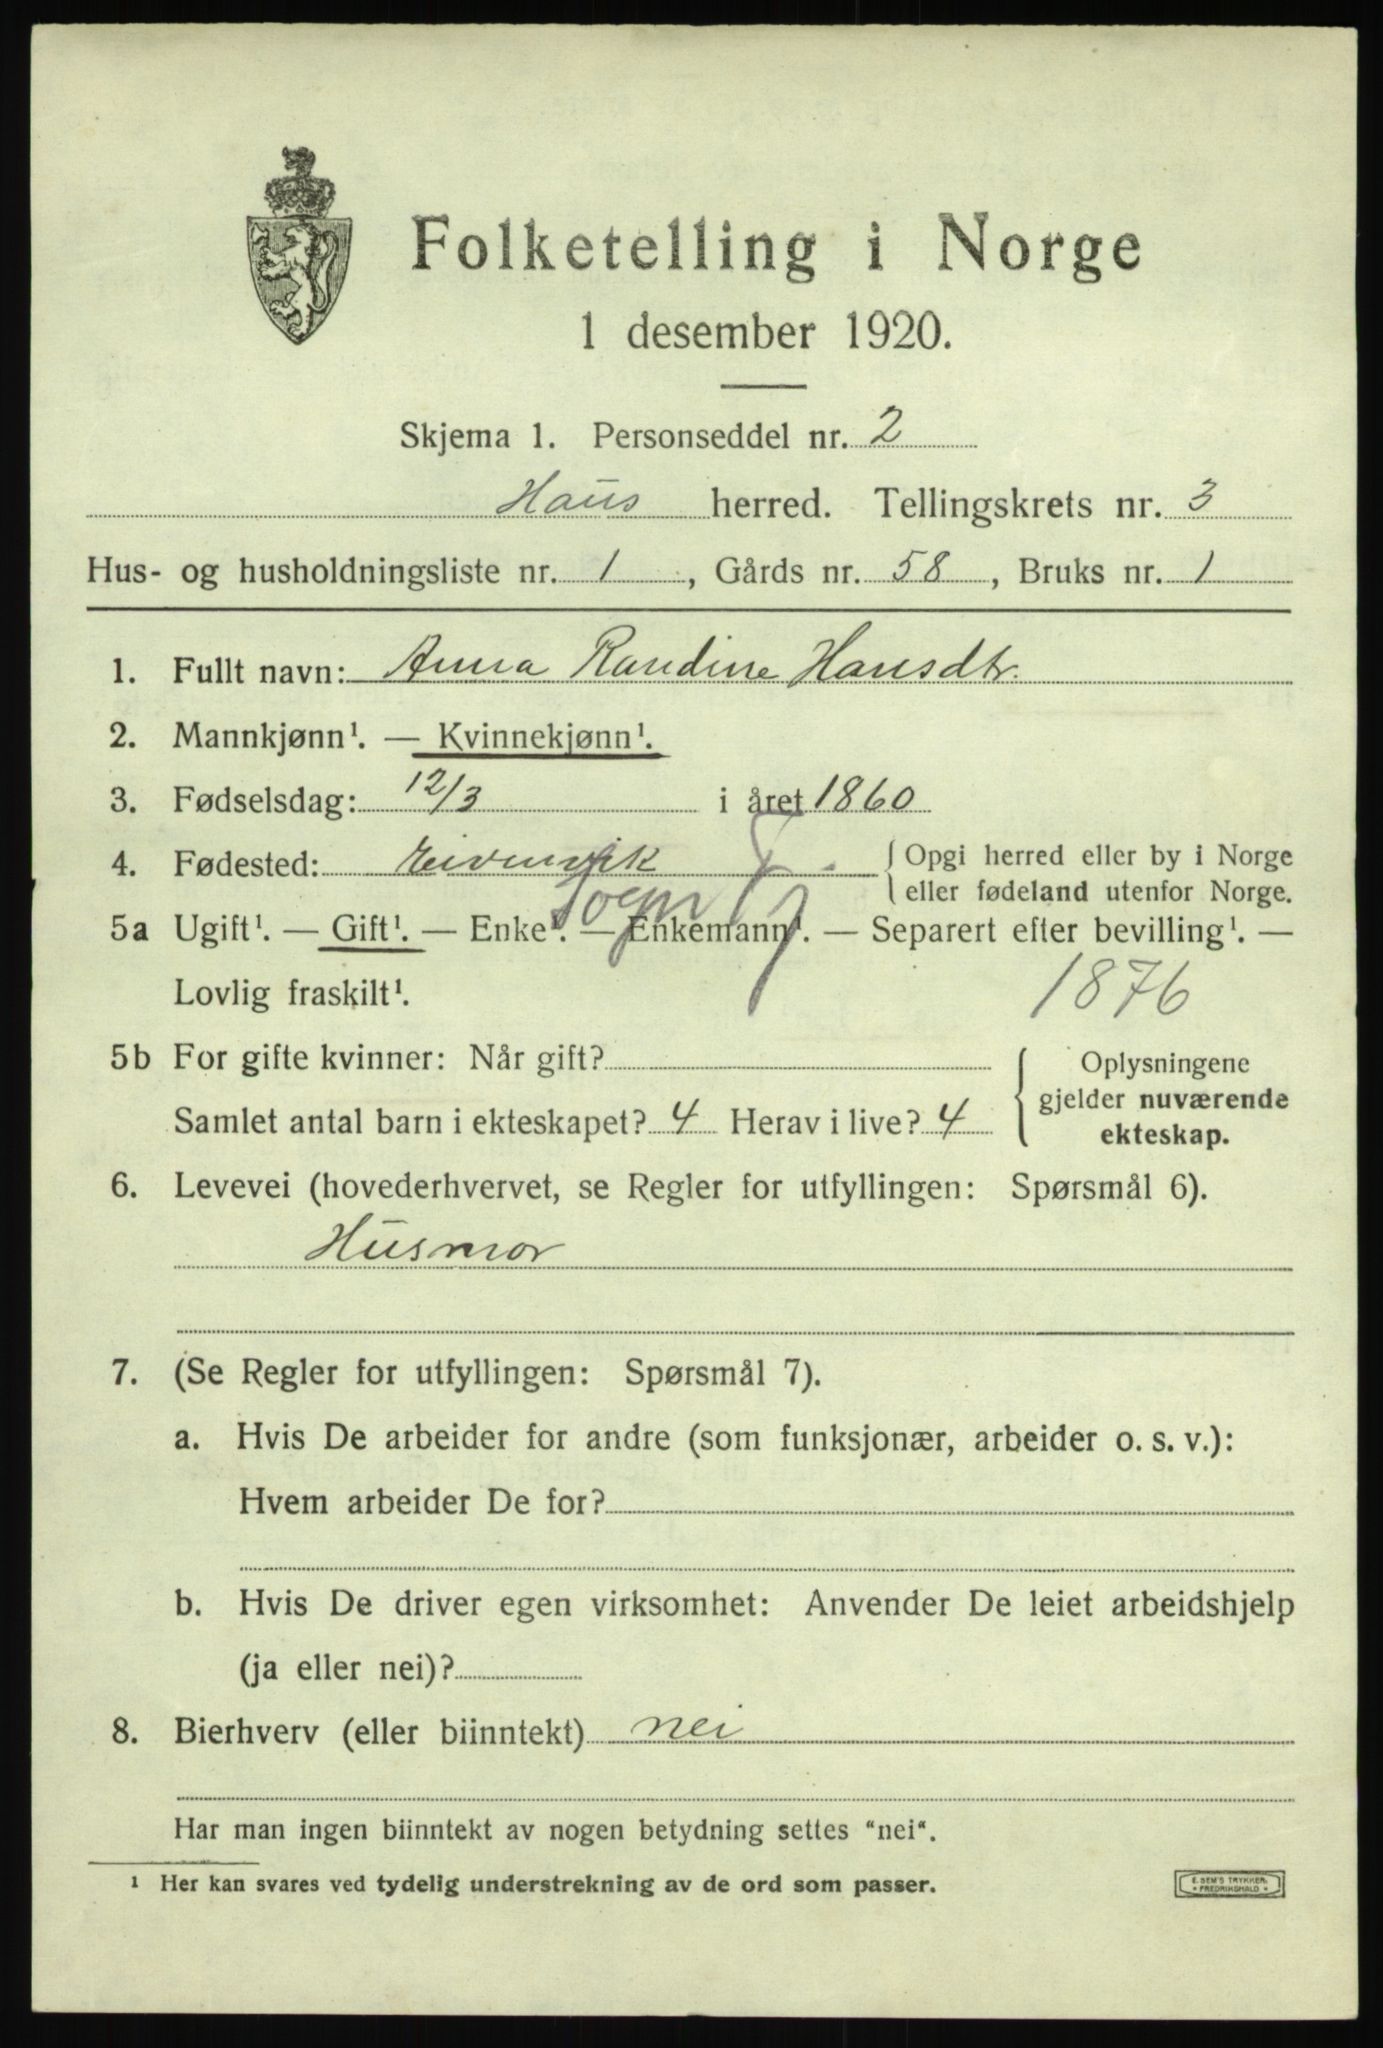 Folketelling i Norge
1 desember 1920.
Skjema 1. Personseddel nr. 2
Haus herred. Tellingskrets nr. 3
Hus- og husholdningsliste nr. 1, Gårds nr. 58, Bruks nr. 1
1. Fullt navn: Anna Randine Hansdtr.
2. Mannkjønn¹. — Kvinnekjønn¹.
3. Fødselsdag: 12/3 i året 1860
4. Fødested: Eivenvik { Opgi herred eller by i Norge
eller fødeland utenfor Norge.
Sogn
5a Ugift¹. — Gift¹. — Enke¹. — Enkemann¹. — Separert efter bevilling¹. —
Lovlig fraskilt¹.
1876
5b For gifte kvinner: Når gift? { Oplysningene
gjelder nuværende
Samlet antal barn i ekteskapet? 4 Herav i live? 4 ekteskap.
6. Levevei (hovederhvervet, se Regler for utfyllingen: Spørsmål 6).
Husmor
7. (Se Regler for utfyllingen: Spørsmål 7).
a. Hvis De arbeider for andre (som funksjonær, arbeider o. s. v.):
Hvem arbeider De for?
b. Hvis De driver egen virksomhet: Anvender De leiet arbeidshjelp
(ja eller nei)?
8. Bierhverv (eller biinntekt) nei
Har man ingen biinntekt av nogen betydning settes "nei".
¹ Her kan svares ved tydelig understrekning av de ord som passer.
E. SEM'S TRYKKERI
• FREDRIKSHALD •